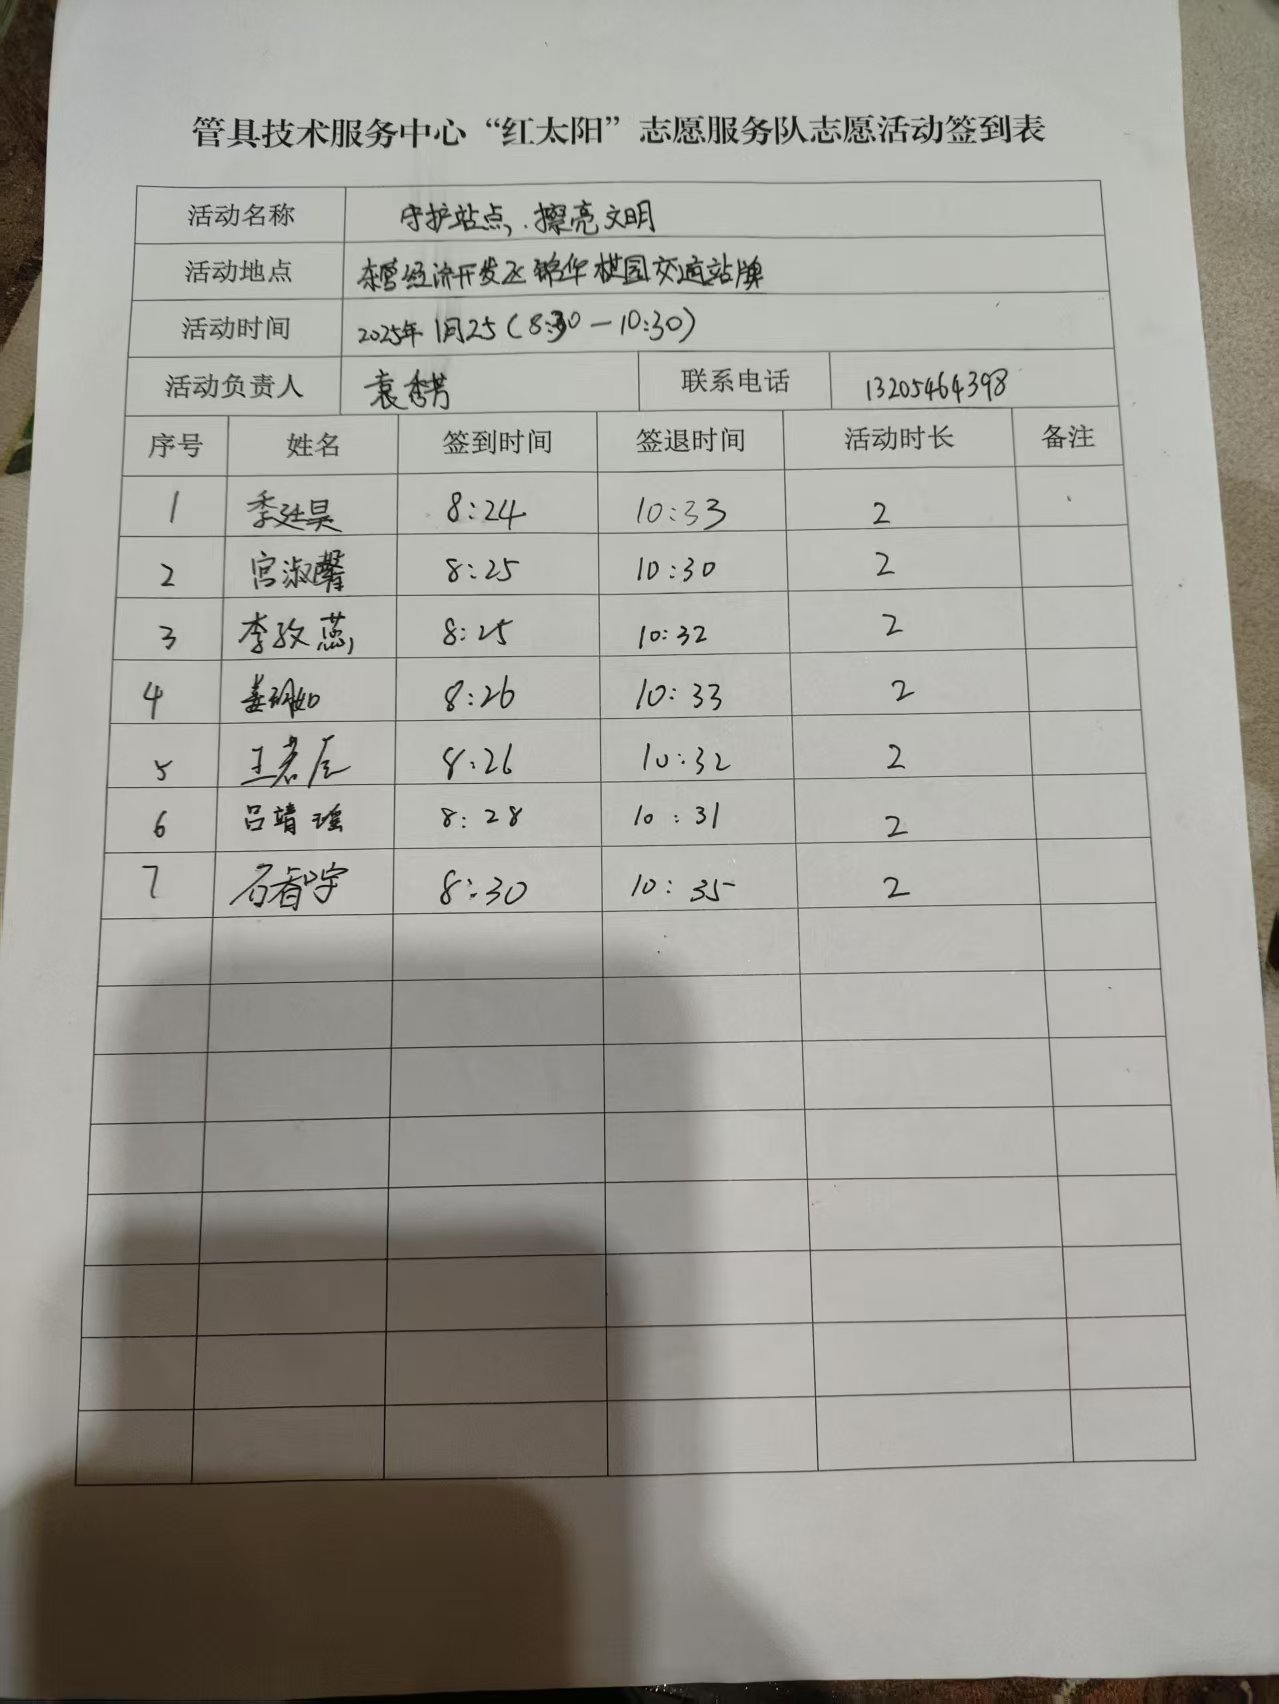 管具技术服务中心“红太阳”志愿服务队志愿活动签到表
活动名称 守护站点,擦亮文明
活动地点 东营经济开发区锦华棋园交通站牌
活动时间 2025年1月25(8:30—10:30)
活动负责人 袁秀芳 联系电话 13205464398
序号 姓名 签到时间 签退时间 活动时长 备注
1 季廷昊 8:24 10:33 2
2 宫淑馨 8:25 10:30 2
3 李玫蕊 8:25 10:32 2
4 8:26 10:33 2
5 王君辰 8:26 10:32 2
6 吕靖瑶 8:28 10:31 2
7 石睿宇 8:30 10:35 2